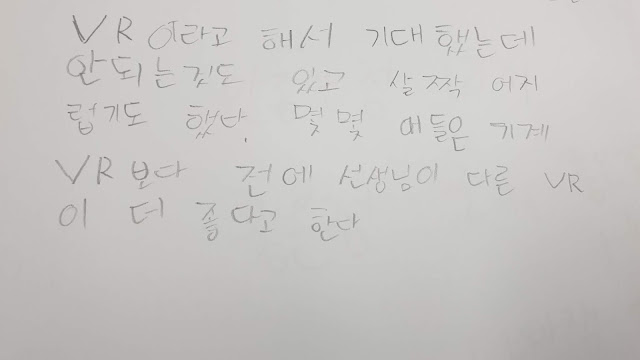 VR이라고 해서 기대했는데
안되는것도 있고 살짝 어지
럽기도 했다. 몇몇 애들은 기계
VR보다 전에 선생님이 다른 VR
이 더 좋다고 한다